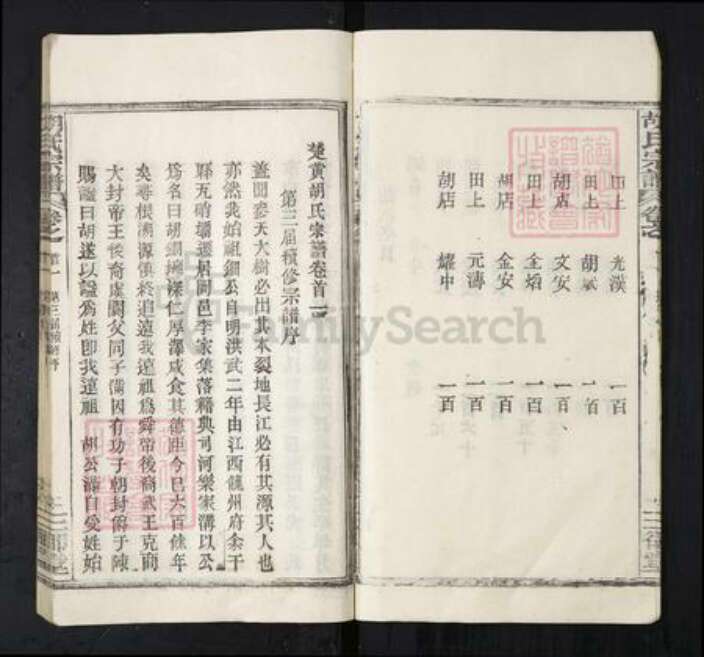 胡氏宗譜
田上 光漢 一百
田上 胡斌 一百
胡店 文安 一百
田上 全焰 一百
胡店 金安 一百
田上 元濤 一百
胡店 耀中 一百
楚黄胡氏宗譜卷首一
第三届續修宗譜序
蓋聞參天大樹必出其本裂地長江必有其源其人也
亦然我始祖 公自明洪武二年由江西饒州府余干
縣瓦 遷居岡邑李家集落籍典司河樂家溝以公
爲名曰胡 仁厚澤咸食其德距今已六百餘年
矣尋根溯源慎終追遠我遠祖爲舜帝後裔武王克商
大封帝王後裔虞閼父同子滿因有功于朝封爵于陳
賜謚曰胡遂以謚爲姓卽我遠祖 胡公滿自受姓始
胡氏宗譜
FamilySearch